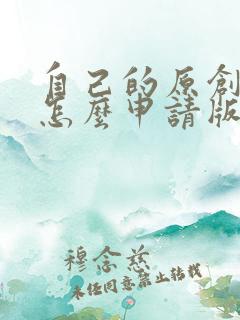 自己的原創
怎麼申請版
穆念慈
未经同意禁止转载